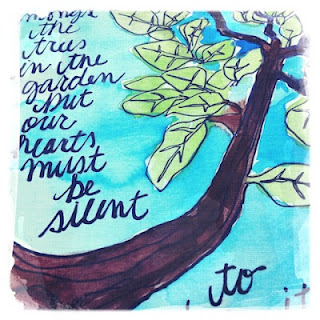 mongst
the
trees
in the
garden
but
our
hearts
must
be
silent
to
it